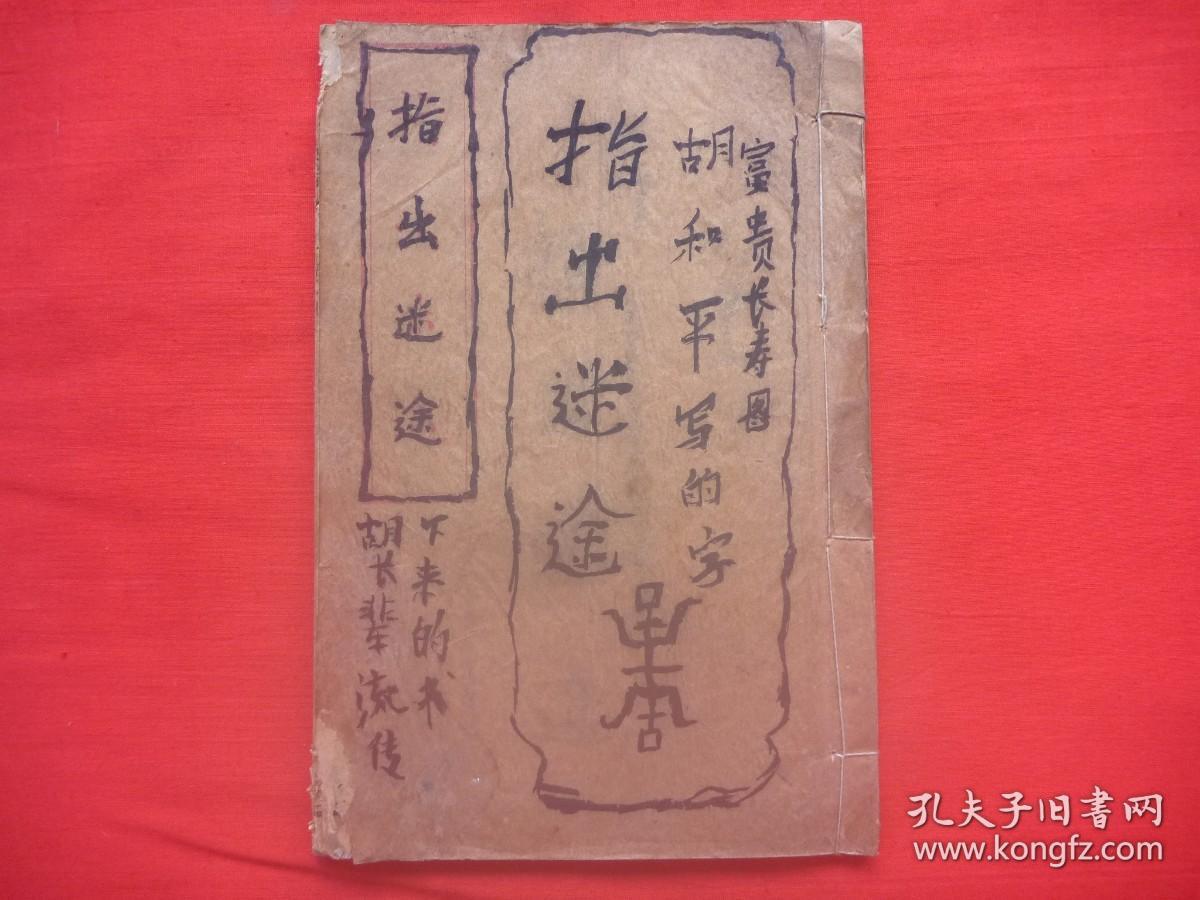 指出迷途
胡长辈流传
下来的书
指出迷途
胡和平写的字
富贵长寿图
孔夫子旧書网
www.kongfz.com